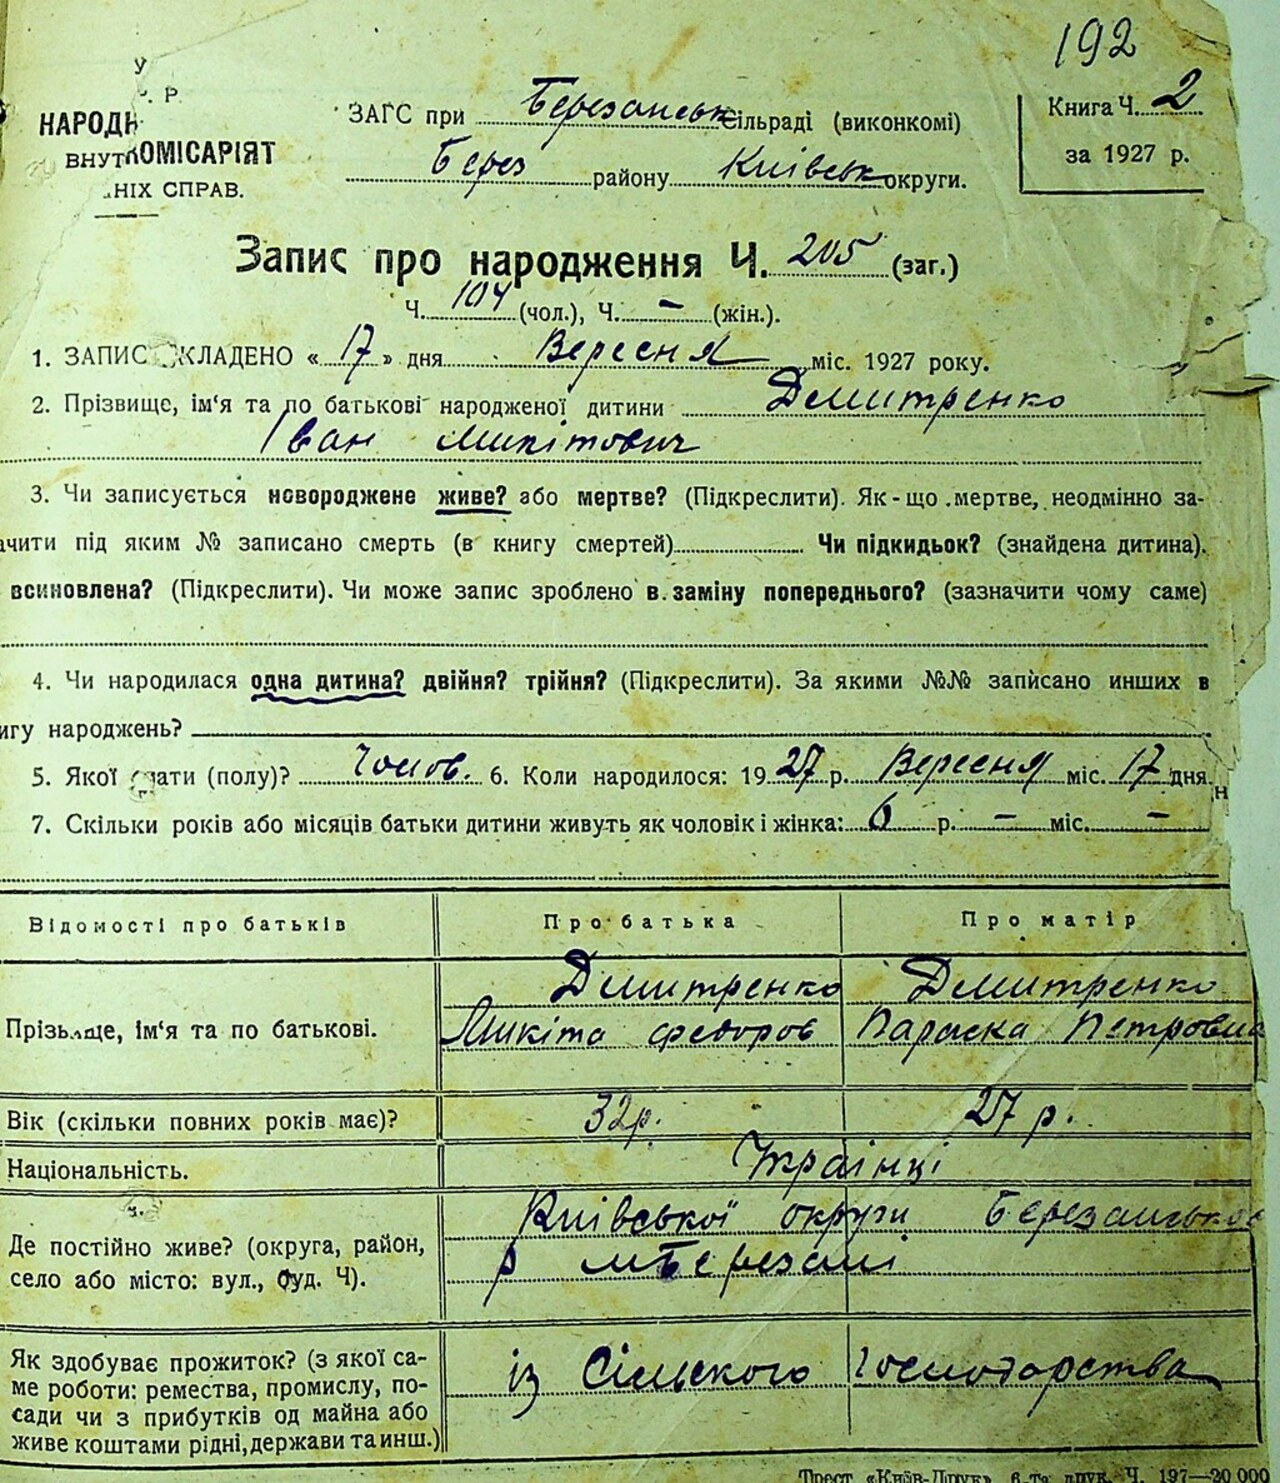 192
У
Р. Р
НАРОДН
КОМІСАРІЯТ
ВНУТ
НІХ СПРАВ.
ЗАГС при Березанськ Сільраді (виконкомі)
Берез району Київськ округи.
Книга Ч. 2
за 1927 р.
Запис про народження Ч. 205 (заг.)
Ч. 104 (чол.), Ч. – (жін.).
1. ЗАПИС СКЛАДЕНО « 17 » дня Вересня міс. 1927 року.
2. Прізвище, ім'я та по батькові народженої дитини Дмитренко
Іван Микітович
3. Чи записується новороджене живе? або мертве? (Підкреслити). Як-що мертве, неодмінно за-
ачити під яким № записано смерть (в книгу смертей) Чи підкидьок? (знайдена дитина).
всиновлена? (Підкреслити). Чи може запис зроблено в заміну попереднього? (зазначити чому саме)
4. Чи народилася одна дитина? двійня? трійня? (Підкреслити). За якими №№ записано инших в
игу народжень?
5. Якої стати (полу)? Чолов. 6. Коли народилося: 1927 р. Вересня міс. 17 дня.
7. Скільки років або місяців батьки дитини живуть як чоловік і жінка: 6 р. – міс. –
Відомості про батьків Про батька Про матір
Дмитренко Дмитренко
Прізвище, ім'я та по батькові. Микіта Федоров Параска Петровна
Вік (скільки повних років має)? 32р. 27 р.
Національність. Украінці
Київської округи Березанської
Де постійно живе? (округа, район,
р м Березані
село або місто: вул., буд. Ч).
Як здобуває прожиток? (з якої са-
ме роботи: ремества, промислу, по- із Сільского господарства
сади чи з прибутків од майна або
живе коштами рідні, держави та инш.)
Трест «Київ-Друк» 6-та друк. Ч. 197—20.000